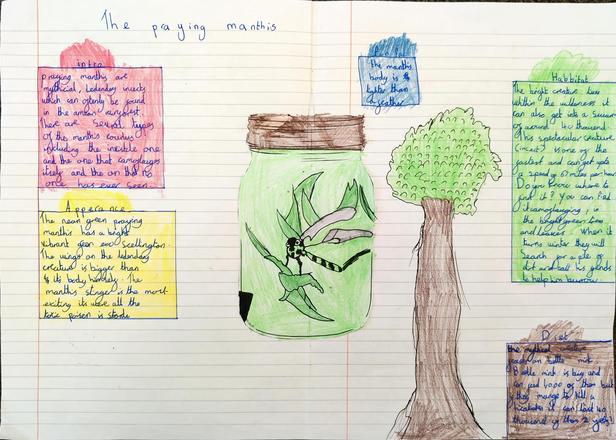 The praying manthis
intro
praying manthis are
mythical, Ledendary insects
which can oftenly be found
in the amazon rainforest.
There are Several types
of the manthis countries
including the invisible one
and the one that camouflages
itself and the on that no
once has ever seen.
Apperance
The neon green praying
manthis has a bright
vibrant green exo scellington.
The wings on the ledendary
creature is bigger than
its body hemsely. The
manthis stinger is the most
exiting its were all the
toxic poison is stored
the manthis
body is
lighter than
a feather
Habbitat
The bright creature live
within the wilderness it
can also get into a swarm
of around 40 thousand
This spectacular creature
(insect) is one of the
fastest and can get upto
a speed of 67 miles per hour
Do you know where to
find it? You can find
it camouflaging in
the bright green trees
and leaves. When it
turns winter they will
Search for a pile of
dirt and call his friends
to help him burrow
Diet
the mythical
on
mint is bug and
can just 4000 of them but
if they mange to kill a
it can last 40
thousand of them 2 years!